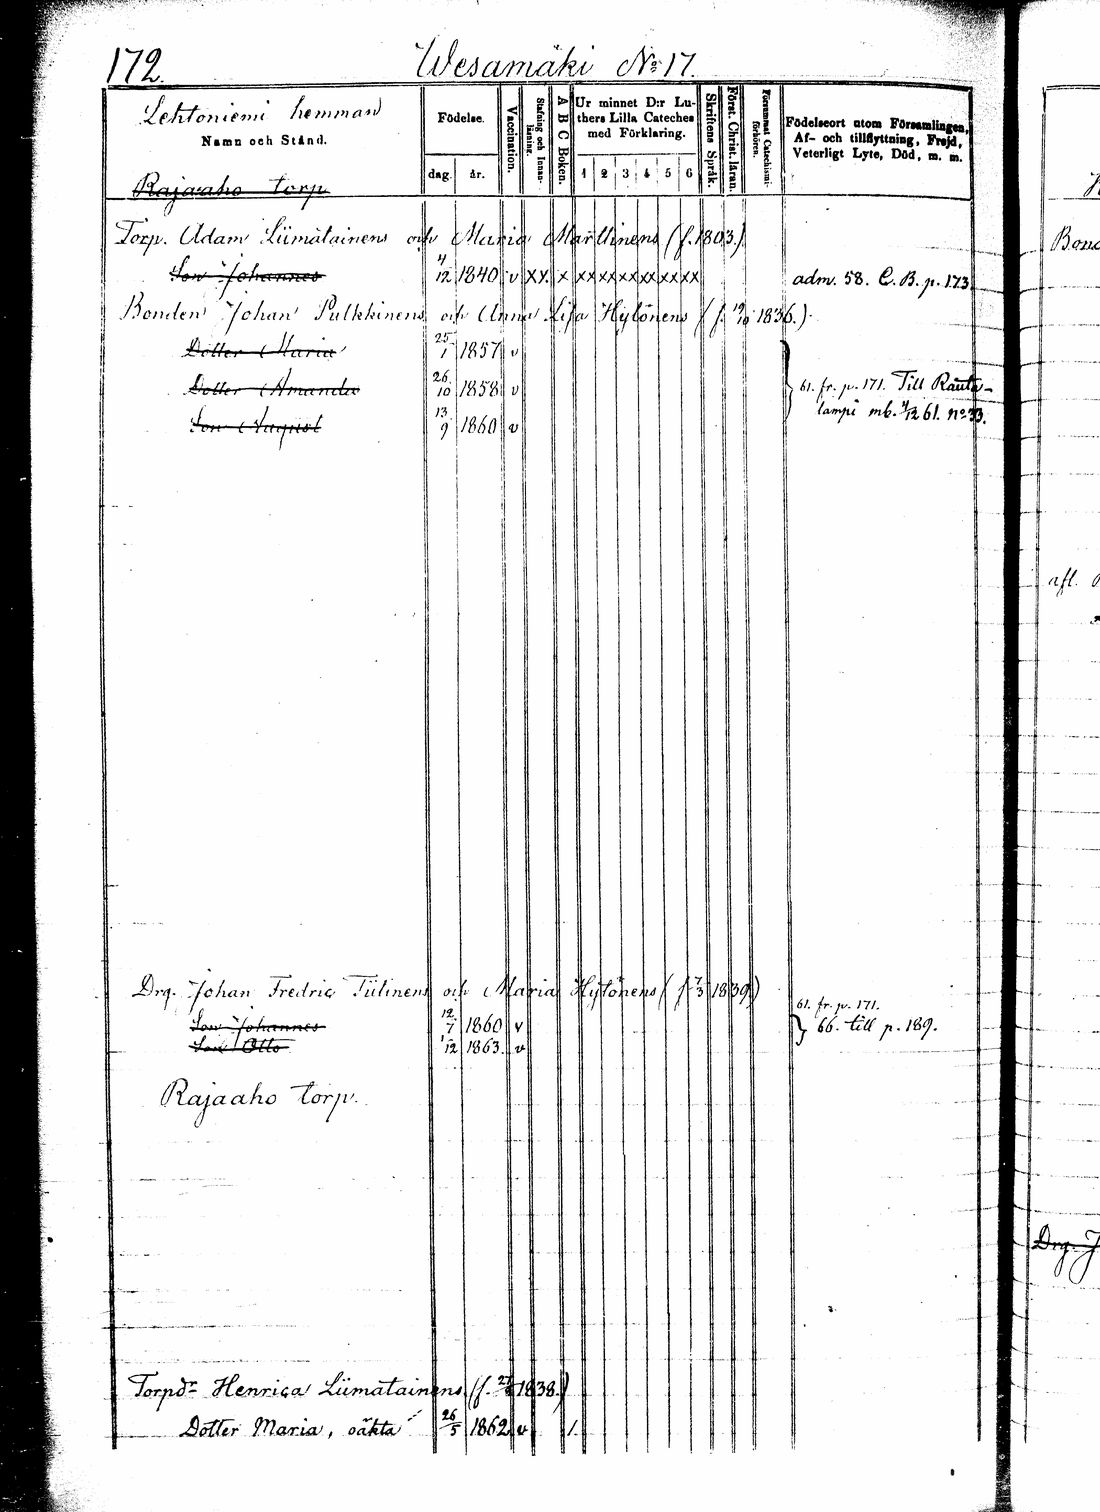 172. Wesamäki No 17.
Lehtoniemi hemman
Namn och Stånd.
Rajaaho torp
Födelse.
dag. år.
Vaccination.
Stafning och Innan-
läsning.
A B C Boken.
Ur minnet D:r Lu-
thers Lilla Cateches
med Förklaring.
1 2 3 4 5 6
Skriftens Språk.
Först. Christ. läran.
Försummat Catechismi-
förhören.
Födelseort utom Församlingen,
Af- och tillflyttning, Frejd,
Veterligt Lyte, Död, m. m.
Torp. Adam Liimatainens och Maria Marttinens (f. 1803.)
Son Johannes 4/12 1840 v XX. x xxxxxxxxxxx adm. 58. C. B. p. 173
Bonden Johan Pulkkinens och Anna Lisa Hytönens (f. 19/10 1836.)
Dotter Maria 25/1 1857 v
Dotter Amanda 26/10 1858 v 61. fr. p. 171. Till Rauta-
lampi mb. 4/12 61. no 33.
Son August 13/9 1860 v
Drg. Johan Fredric Tiitinens och Maria Hytönens (f. 7/3 1839.)
61. fr. p. 171.
Son Johannes 12/7 1860 v 66. till p. 189.
Son Otto 1/12 1863. v
Rajaaho torp.
Torpdr Henrica Liimatainens (f. 1838.)
Dotter Maria, oäkta 26/5 1862 v 1.
afl.
Drg. J